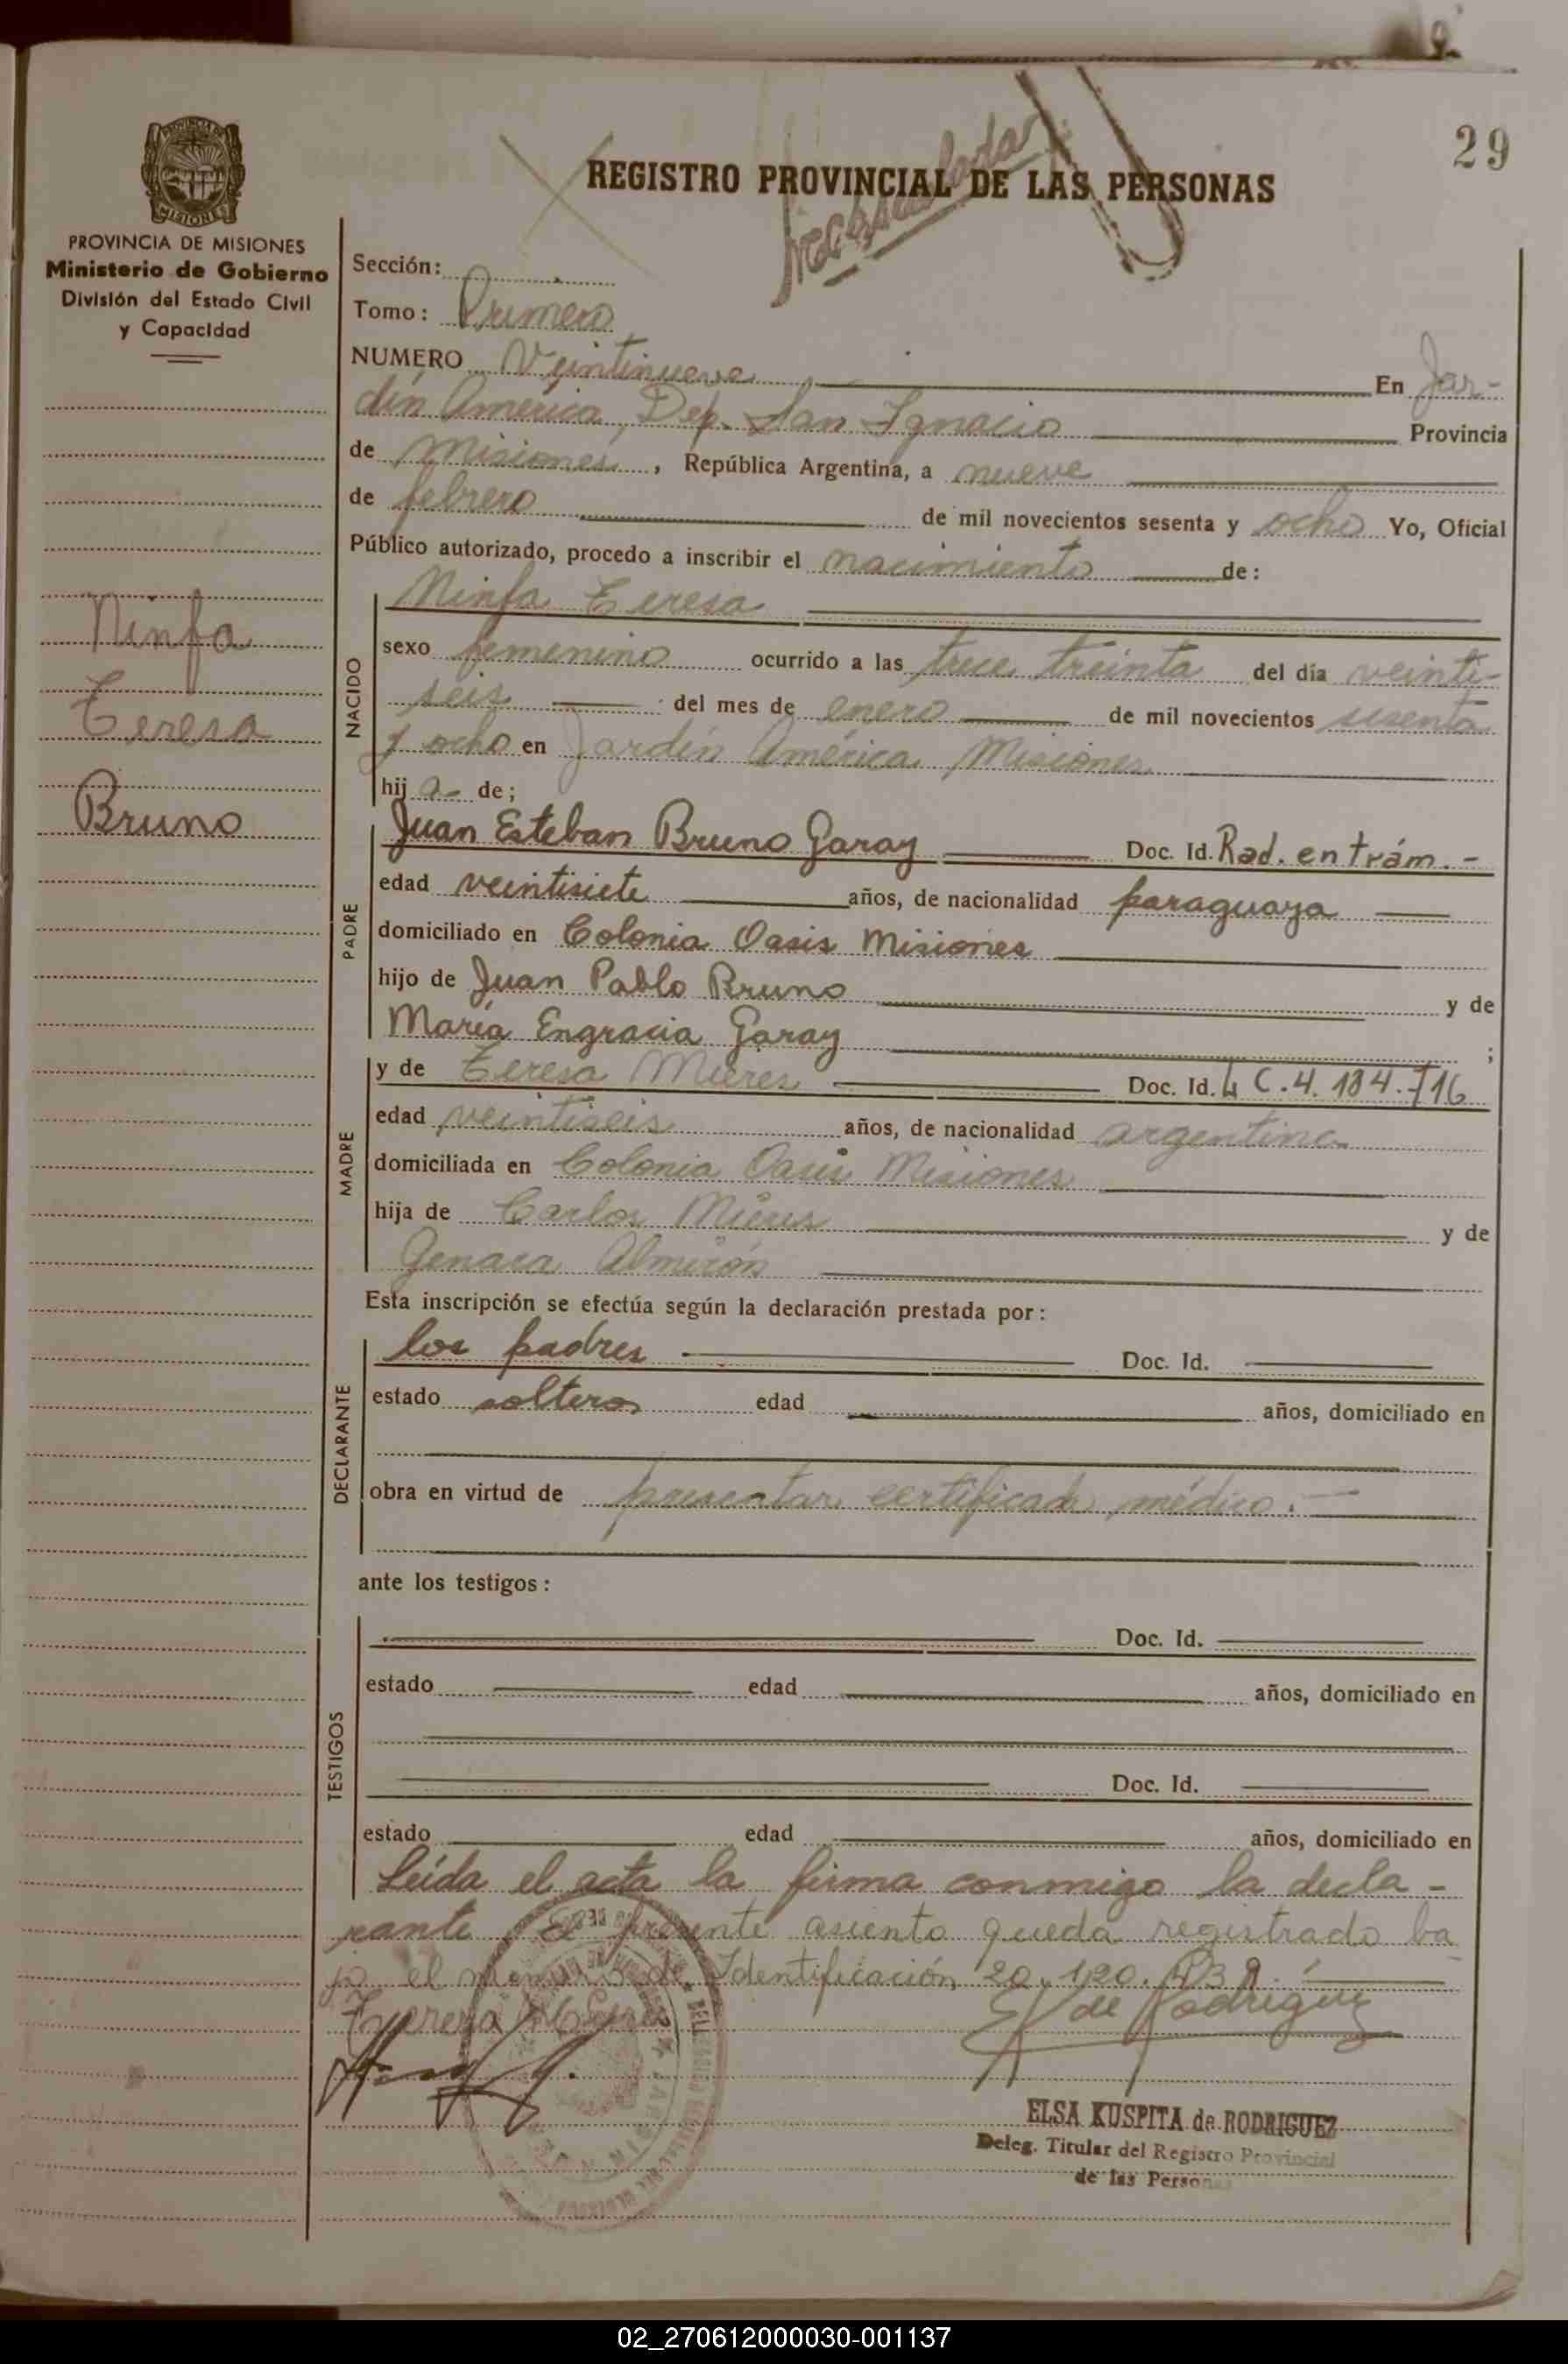 29
REGISTRO PROVINCIAL DE LAS PERSONAS
PROVINCIA DE MISIONES
Ministerio de Gobierno
División del Estado Civil
y Capacidad
Sección:
Tomo: Primero
NUMERO Veintinueve En Jar-
dín América, Dep. San Ignacio Provincia
de Misiones, República Argentina, a nueve
de febrero de mil novecientos sesenta y ocho Yo, Oficial
Público autorizado, procedo a inscribir el nacimiento de:
Ninfa
Teresa
Bruno
NACIDO
Ninfa Teresa
sexo femenino ocurrido a las trece treinta del día veinti-
seis del mes de enero de mil novecientos sesenta
y ocho en Jardín América Misiones
hij a de;
PADRE
Juan Esteban Bruno Garay Doc. Id. Rad. en trám.-
edad veintisiete años, de nacionalidad paraguaya
domiciliado en Colonia Oasis Misiones
hijo de Juan Pablo Bruno y de
María Engracia Garay ;
MADRE
y de Teresa Mieres Doc. Id. L C. 4. 184. 716
edad veintiseis años, de nacionalidad argentina
domiciliada en Colonia Oasis Misiones
hija de Carlos Mieres y de
Genara Almirón
Esta inscripción se efectúa según la declaración prestada por:
DECLARANTE
los padres Doc. Id.
estado solteros edad años, domiciliado en
obra en virtud de presentar certificado médico.
ante los testigos:
TESTIGOS
Doc. Id.
estado edad años, domiciliado en
Doc. Id.
estado edad años, domiciliado en
Leída el acta la firma conmigo la decla-
rante. El presente asiento queda registrado ba
jo el número de Identificación 20.120.
E K de Rodriguez
ELSA KUSPITA de RODRIGUEZ
Deleg. Titular del Registro Provincial
de las Personas
02_270612000030-001137